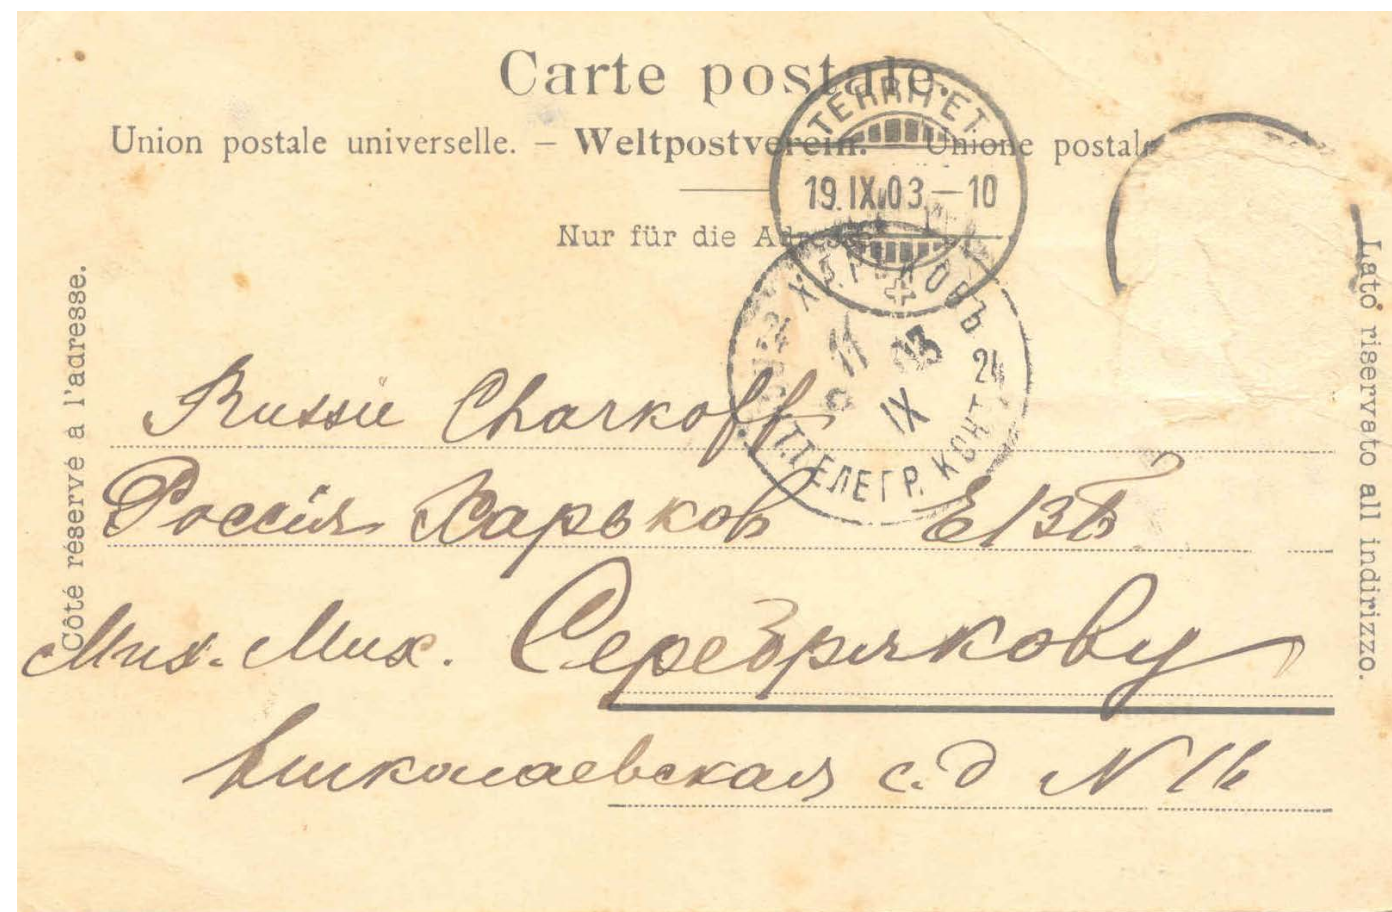 Carte postale.
Union postale universelle. – Weltpostverein. – Unione postale
Nur für die Adresse.
Côté réservé à l'adresse.
Lato riservato all indirizzo.
TERRITET
19.IX.03–10
ХАРЬКОВЪ
11 03
IX
24
ТЕЛЕГР. КОНТ.
Russie Charkoff
Россія Харьков
Мих. Мих. Серебрякову
Николаевская с. д N 16